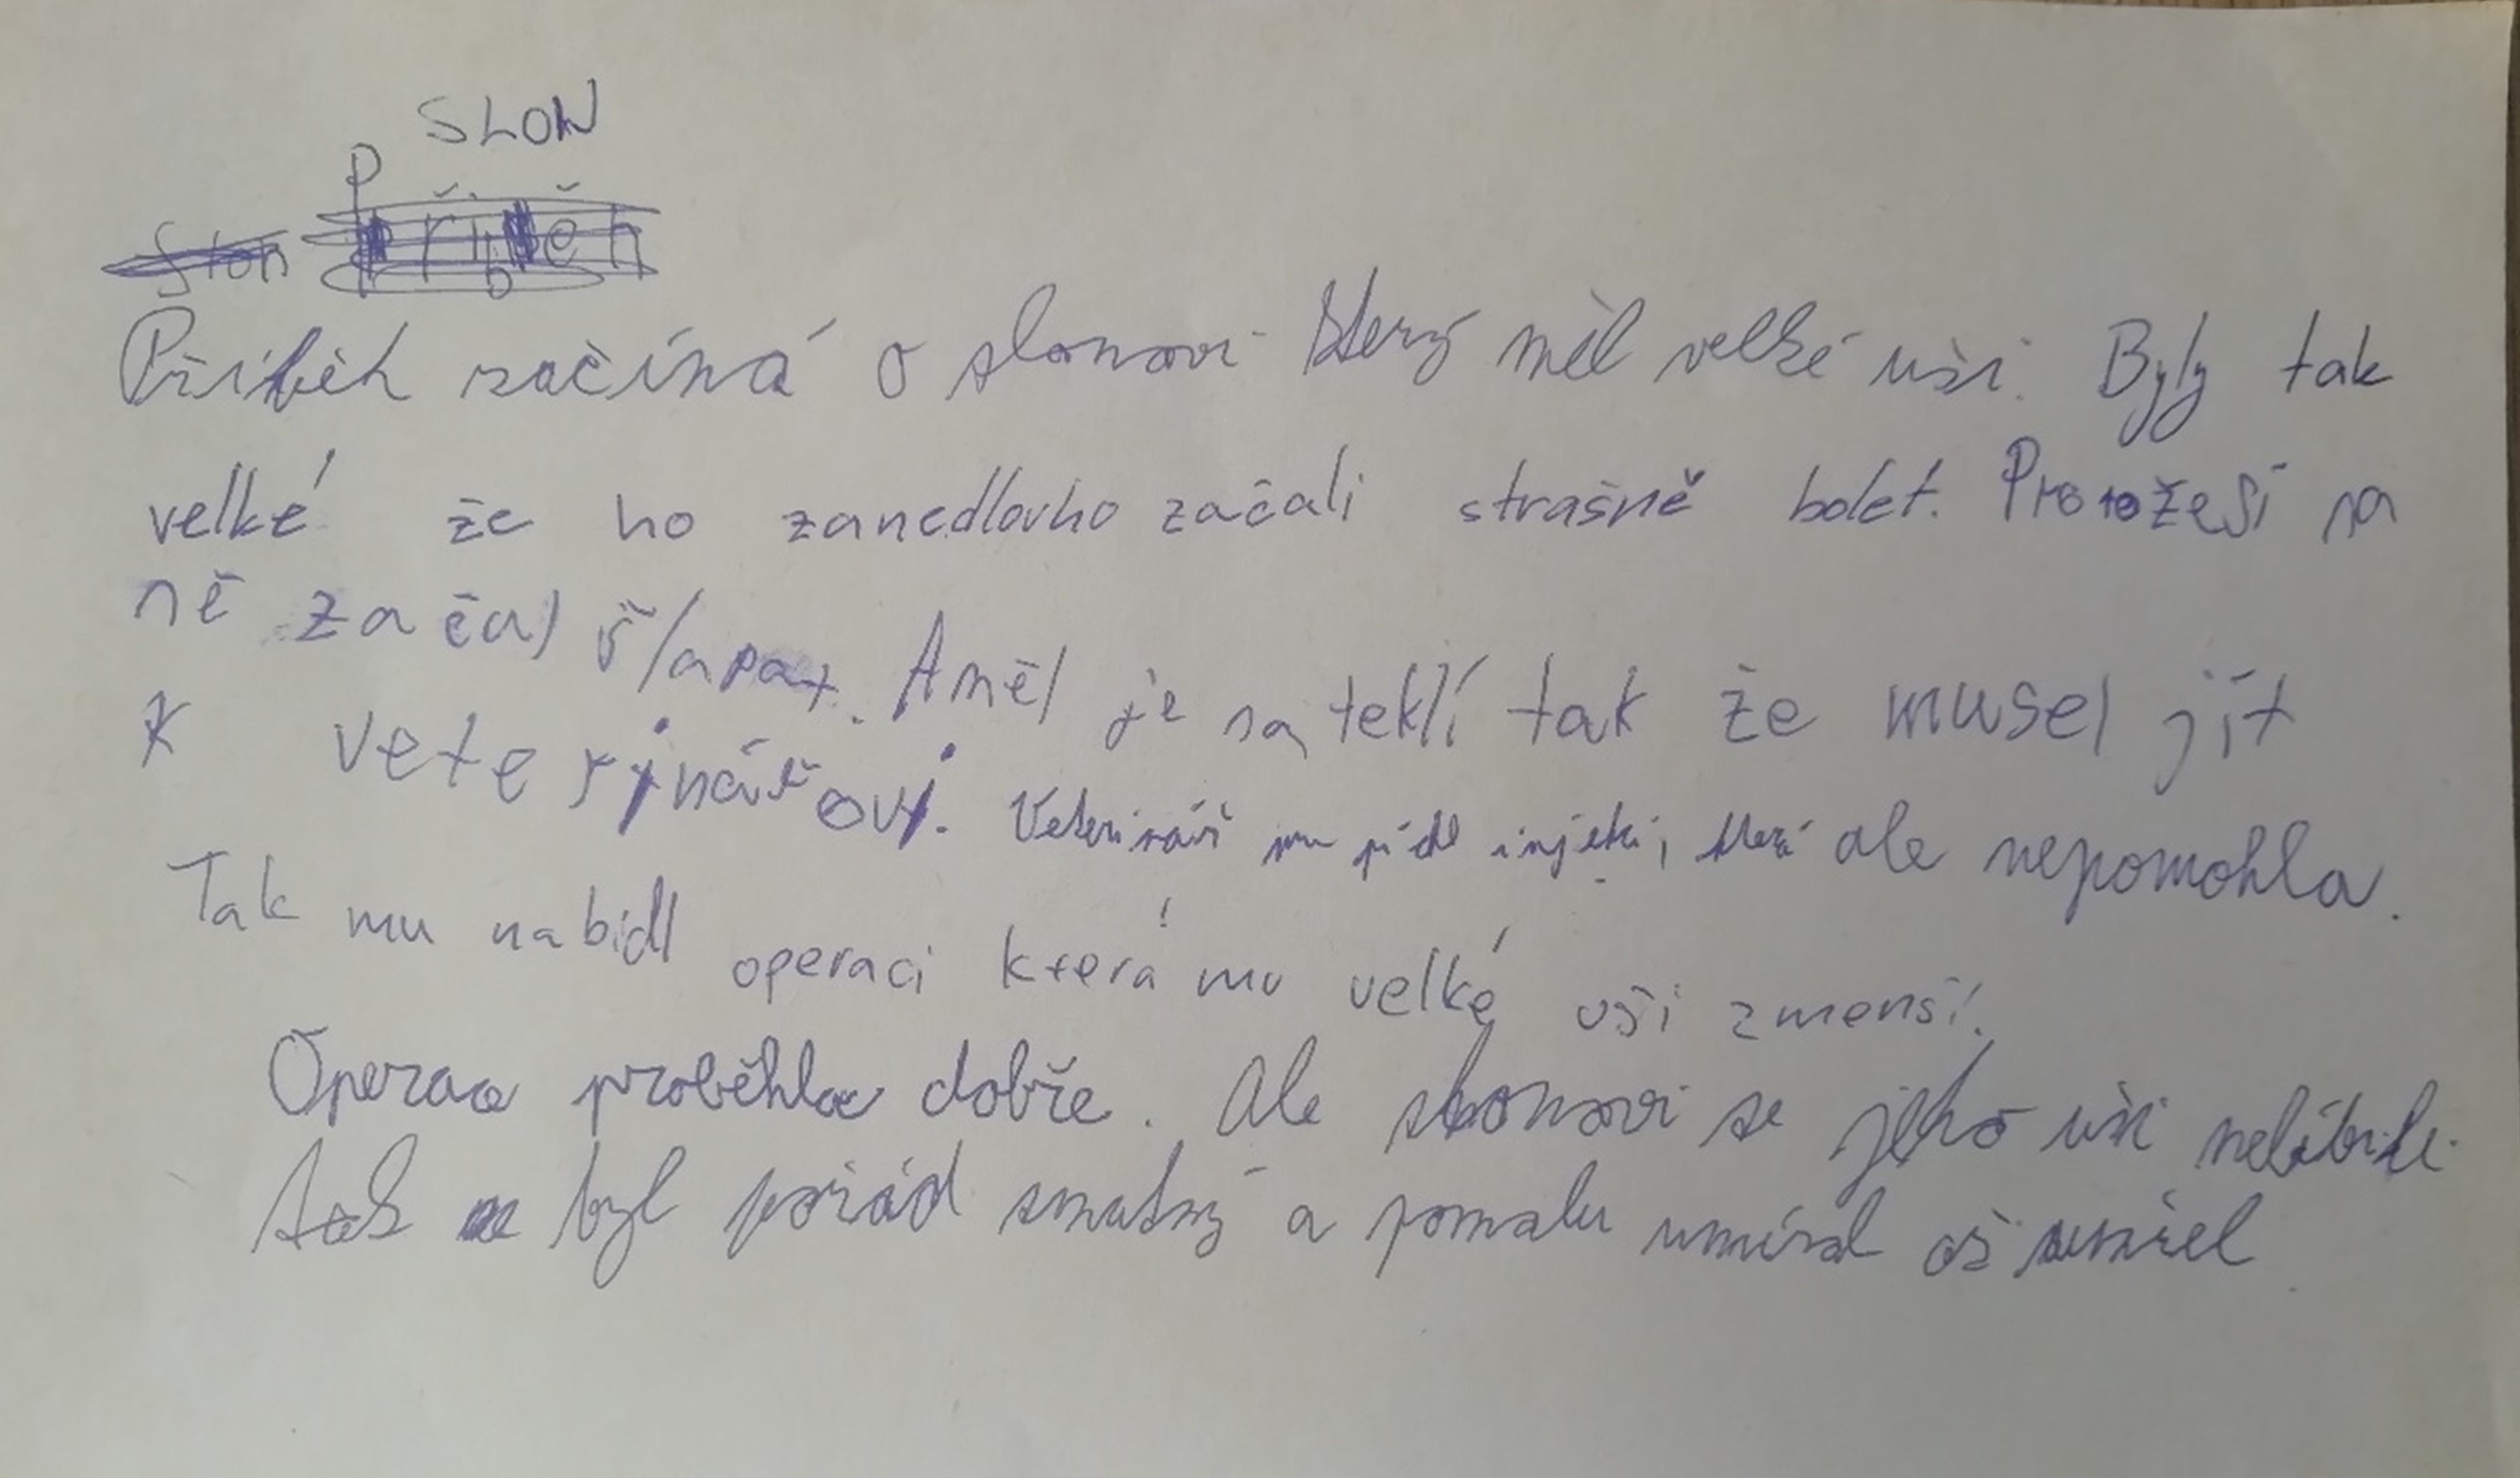 SLON
Slon Příběh
Příběh začíná o slonovi který měl velké uši. Byly tak
velké že ho zanedlouho začali strašně bolet. Protožesi na
ně začal šlapat. Aměl je nateklí tak že musel jít
K veterinářovi. Veterinář mu píchl injekci, která ale nepomohla.
Tak mu nabídl operaci která mu velké uši zmenší.
Operace proběhla dobře. Ale slonovi se jeho uši nelíbili.
tak byl pořád smutný a pomalu umíral až umřel